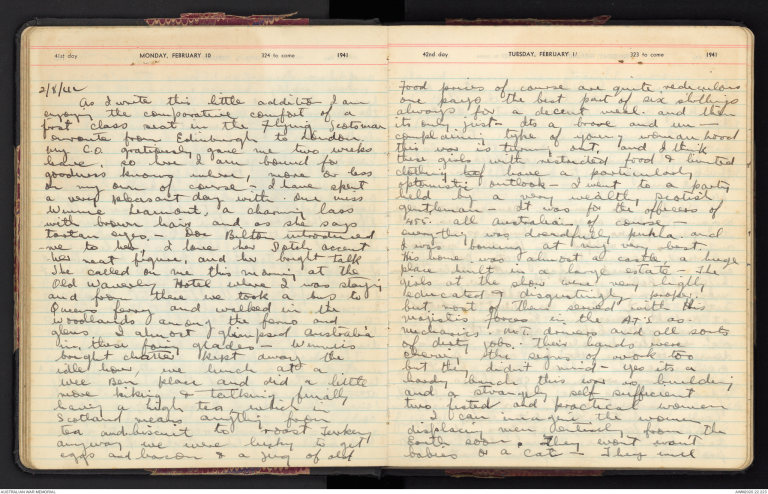 41st day MONDAY, FEBRUARY 10 324 to come 1941
2/8/42
As I write this little addition I am
enjoying the comparative comfort of a
first class seat in the Flying Scotsman
enroute from Edinburgh to London
my C.O. gratiously gave me two weeks
leave. so here I am bound for
goodness knows where, more or less
on my own of course - I have spent
a very pleasant day with one miss
Winnie Beaumont, a charming lass
with brown hair and as she says
tartan eyes, - Joe Bilton introduced
me to her, I love her Scotch accent
her neat figure, and her bright talk
She called on me this morning at the
Old Waverley Hotel where I was staying
and from there we took a bus to
Queens ferry and walked in the
woodlands & among the ferns and
glens I almost glimpsed Australia
in these fairy glades - Winnie's
bright chatter kept away the
idle hour, we lunch at a
wee Ben place and did a little
more hiking & talking finally
having a high tea which in
Scotland means anything from
tea and biscuit to roast Turkey
anyway we were lucky to get
eggs and bacon & a jug of old
42nd day TUESDAY, FEBRUARY 11 323 to come 1941
Food prices of course are quite rediculous
one pays the best part of six shillings
always for a decent meal. and then
its only just - Its a brave and un
complaining type of young womanhood
this war is turning out, and I think
these girls with restricted food & limited
clothing have a particularly
optomistic outlook - I went to a party
held by a very wealthy scotish
gentleman - It was for the officers of
455. all Australians of course
everything was dreadfully pukka. and
I was behaving at my very best.
His home was almost a castle, a huge
place built in a large estate - The
girls at the show were very highly
educated & disgustingly proper
but most of them served with His
majestis forces in the ATS as
mechanics & M.T. drivers and all sorts
of dirty jobs. Their hands were
clever, the signs of work too
but they didn't mind - yes its a
hardy bunch this war is building
and a strangely self sufficient
two fisted and practical women
I can imagine the women
displacing men entirely from the
Earth soon. They wont want
babies or a cat - They will
AUSTRALIAN WAR MEMORIAL